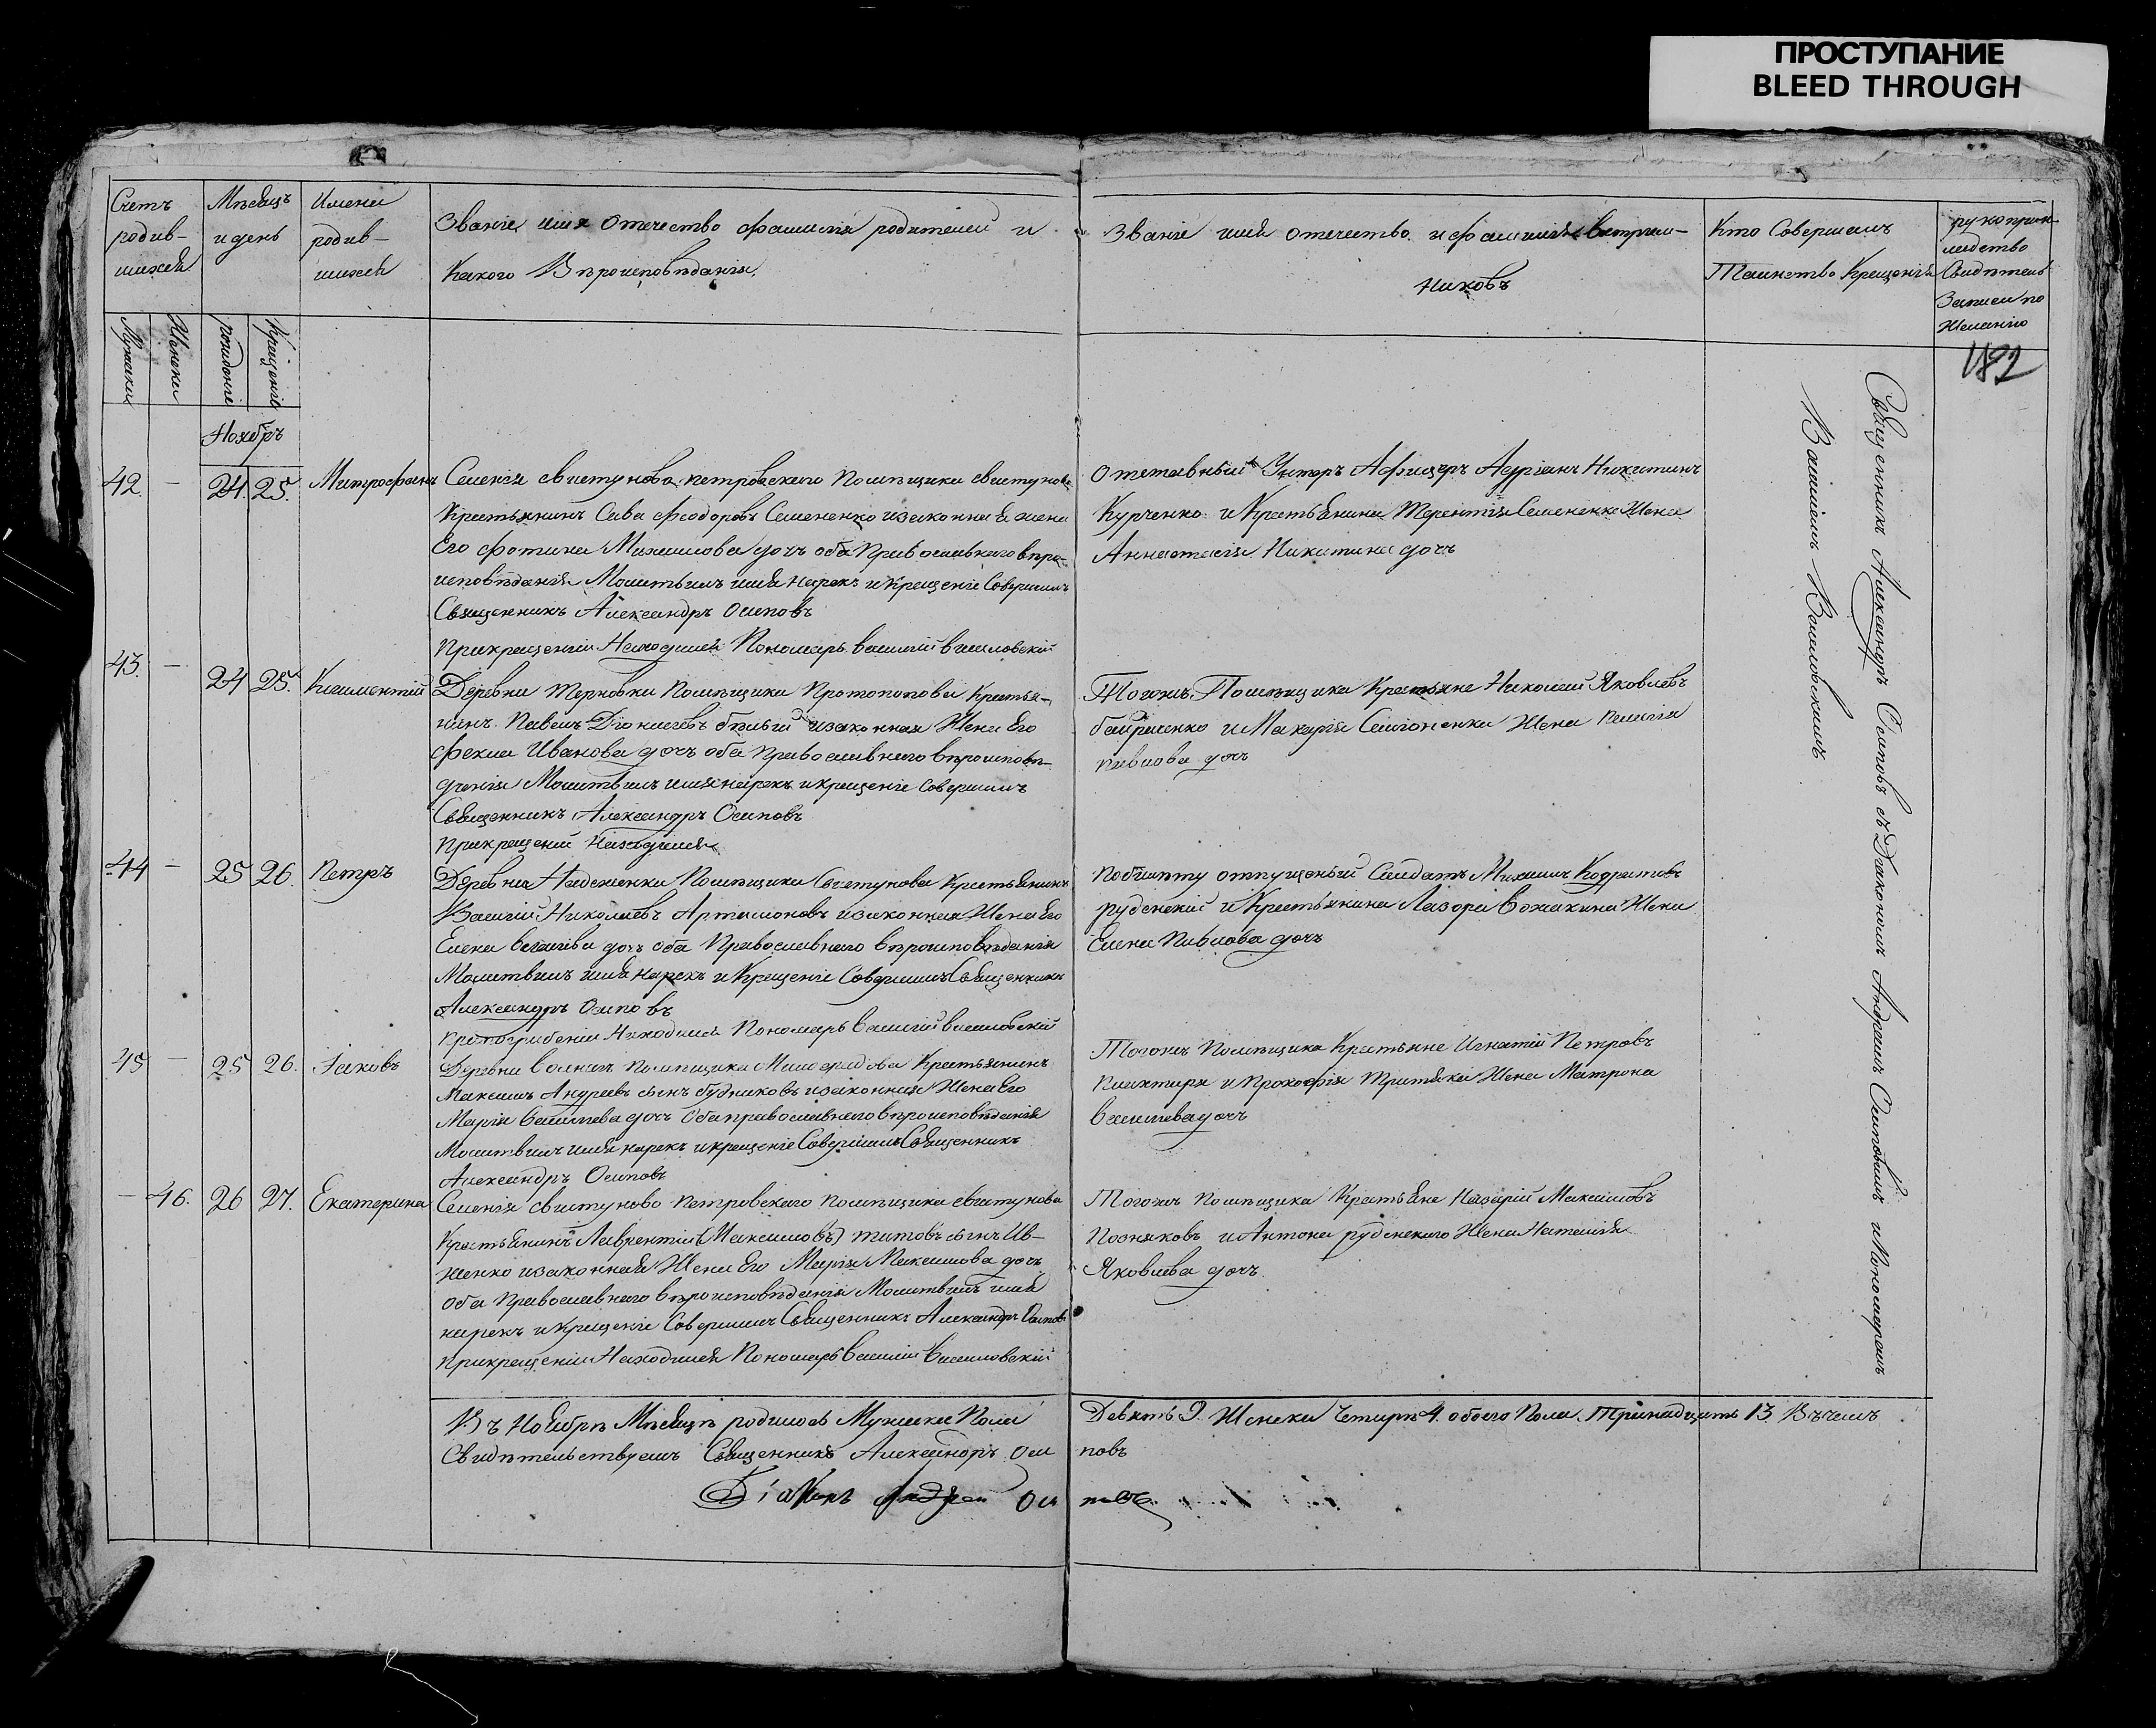 ПРОСТУПАНИЕ
BLEED THROUGH
Счетъ
родив-
шихся
Мѣсяцъ
и день
Имена
родив-
шихся
Званіе имя отечество фамилія родителей и
Какого Вѣроисповѣданія
Званіе имя отечество и фамилія воспріем-
никовъ
Кто Совершалъ
Таинство Крещенія
рукоприк-
ладство
Свидѣтелей
Записи по
Желанію
Мужски
Женски
рожденіе
Крещеніе
182
Ноябръ
42. — 24 25. Митрофанъ
Селенія свистунова петровского Помѣщика свистунова
Крестьянинъ Сава Феодоровъ Семененко изаконная жена
Его Фотина Михаилова дочъ оба Православнаго вѣро-
исповѣданія Молитвилъ имя нарекъ и Крещеніе Совершилъ
Священникъ Александръ Осиповъ
Прикрещеніи Находился Пономаръ василій василовскій
Отставный Унтеръ Афицеръ Адріанъ Никитинъ
Курченко и Крестьянина Терентія Семененка Жена
Аннастасія Никитина дочъ
43. — 24 25. Климентій
Деревни терновки Помѣщика Протопопова Крестья-
нинъ Павелъ Діонисіевъ бѣлый изаконная Жена Его
Фекла Иванова дочъ оба Православнаго вѣроисповѣ-
денія Молитвилъ имя нарекъ и крещеніе совершилъ
Священникъ Александръ Осиповъ
Прикрещеніи Находился
Тогожъ Помѣщика Крестьяне Николай Яковлевъ
и Макарія Жена Пелагія
Павлова дочъ
44 — 25 26. Петръ
Деревни Надеженки Помѣщика Свистунова Крестьянинъ
Василій Николаевъ Артамоновъ изаконная Жена Его
Елена дочъ оба Православнаго вѣроисповѣданія
Молитвилъ имя нарекъ и Крещеніе Совершилъ Священникъ
Александръ Осиповъ
Находился Пономаръ василій василовскій
Побилету отпущеный Салдатъ Михаилъ Кодратовъ
руденскій и Крестьянина Лазоря Вожакина Жена
Елена Павлова дочъ
45 — 25 26. Іаковъ
Деревни Помѣщика Милорадова Крестьянинъ
Максимъ Андреевъ сынъ будниковъ изаконная Жена Его
Марія василіева дочъ Оба православнаго вѣроисповѣданія
Молитвилъ имя нарекъ и крещеніе Совершилъ Священникъ
Александръ Осиповъ
Тогожъ Помѣщика Крестьяне Игнатій Петровъ
и Прокофія третяка Жена Матрона
василіева дочъ
— 46. 26 27. Екатерина
Селенія свистуново Петровского помѣщика свистунова
Крестьянинъ Лаврентій (Максимовъ) титовъ сынъ Ив-
женко изаконная Жена Его Марія Максимова дочъ
Оба Православнаго вѣроисповѣданія Молитвилъ имя
нарекъ и Крещеніе Совершилъ Священникъ Александръ Осиповъ
Прикрещеніи Находился Пономаръ василій василовскій
Тогожъ Помѣщика Крестьяне Назарій Максимовъ
Позняковъ и Антона руденского Жена Наталія
Яковлева дочъ
Священникъ Александръ Осиповъ съ Діакономъ Андреемъ Осиповымъ и Пономаремъ
Василіемъ Василовскимъ
Въ Ноябрѣ Мѣсяцѣ родилось Мужска Пола Девять 9. Женска Четыри 4. обоего Пола Тринадцать 13. Въчемъ
Свидѣтельствуемъ Священникъ Александръ Осиповъ
Діаконъ Андрей Осиповъ